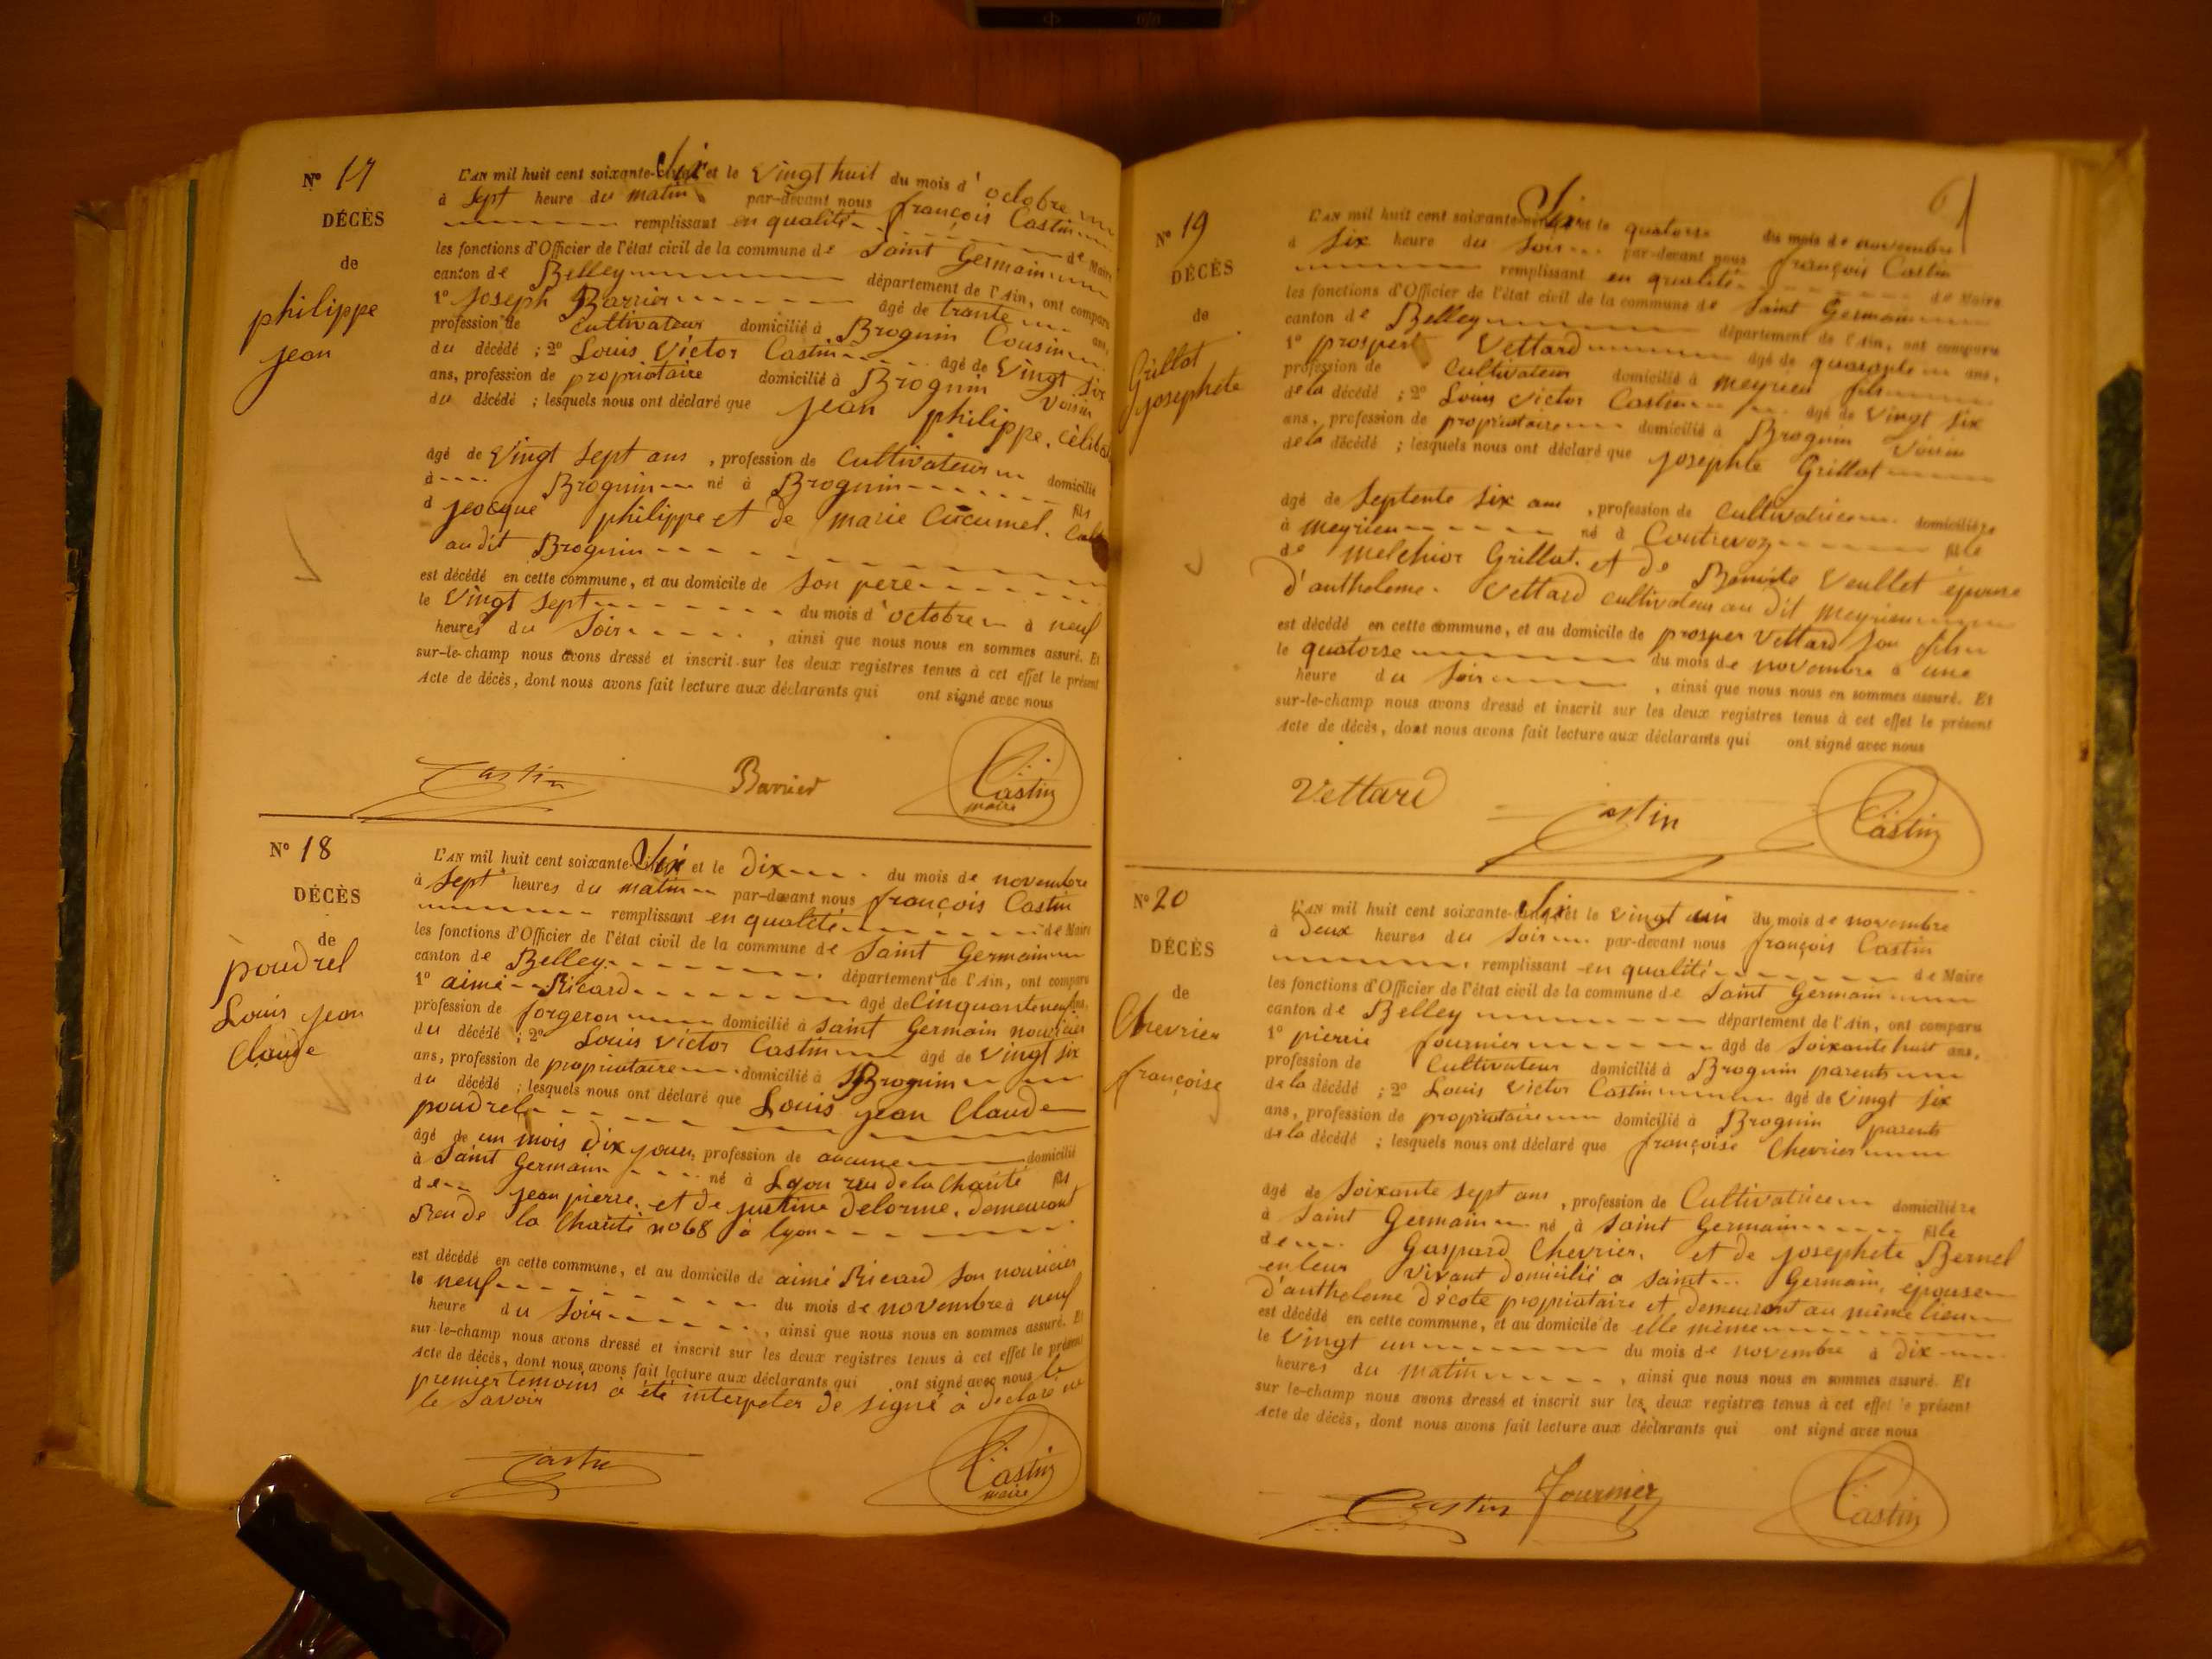 N° 17
DÉCÈS
de
philippe
jean
L'AN mil huit cent soixante-Six et le Vingt huit du mois d'octobre
à Sept heure du matin par-devant nous françois Castin
remplissant en qualité de Maire
les fonctions d'Officier de l'état civil de la commune de Saint Germain
canton de Belley département de l'Ain, ont comparu
1° Joseph Barrier âgé de trante ans,
profession de Cultivateur domicilié à Brognin Cousin
du décédé ; 2° Louis Victor Castin âgé de Vingt Six
ans, profession de propriataire domicilié à Brognin Voisin
du décédé ; lesquels nous ont déclaré que jean philippe,
âgé de Vingt Sept ans , profession de Cultivateur domicilié
à Brognin né à Brognin fils
d philippe et de marie Cucumel.
au dit Brognin
est décédé en cette commune, et au domicile de Son pere
le Vingt Sept du mois d'octobre à neuf
heures du Soir , ainsi que nous nous en sommes assuré. Et
sur-le-champ nous avons dressé et inscrit sur les deux registres tenus à cet effet le présent
Acte de décès, dont nous avons fait lecture aux déclarants qui ont signé avec nous
Castin Barrier Castin
maire
N° 18
DÉCÈS
de
poudrel
Louis jean
Claude
L'AN mil huit cent soixante-Six et le Dix du mois de novembre
à Sept heures du matin par-devant nous françois Castin
remplissant en qualité de Maire
les fonctions d'Officier de l'état civil de la commune de Saint Germain
canton de Belley département de l'Ain, ont comparu
1° aimé Ricard âgé de Cinquante neuf ans,
profession de forgeron domicilié à Saint Germain nouricier
du décédé ; 2° Louis Victor Castin âgé de Vingt Six
ans, profession de propriataire domicilié à Brognin
du décédé ; lesquels nous ont déclaré que Louis jean Claude
poudrel
âgé de un mois Dix jours, profession de aucune domicilié
à Saint Germain né à Lyon rue de la Charité fils
de jean pierre, et de justine Delorme, demeurant
Rue de la Charité n° 68 à lyon
est décédé en cette commune, et au domicile de aimé Ricard Son nouricier
le neuf du mois de novembre à neuf
heure du Soir , ainsi que nous nous en sommes assuré. Et
sur-le-champ nous avons dressé et inscrit sur les deux registres tenus à cet effet le présent
Acte de décès, dont nous avons fait lecture aux déclarants qui ont signé avec nous le
premier temoins à été interpeter de signé à declaré ne
le Savoir
Castin Castin
maire
6
N° 19
DÉCÈS
de
Grillot
josephete
L'AN mil huit cent soixante-Six et le quatorse du mois de novembre
à Six heure du Soir par-devant nous françois Castin
remplissant en qualité de Maire
les fonctions d'Officier de l'état civil de la commune de Saint Germain
canton de Belley département de l'Ain, ont comparu
1° prosper Vettard âgé de quarante ans,
profession de Cultivateur domicilié à meyrieu fils
de la décédé ; 2° Louis Victor Castin âgé de Vingt Six
ans, profession de propriataire domicilié à Brognin Voisin
de la décédé ; lesquels nous ont déclaré que josephte Grillot
âgé de Septente Six ans , profession de Cultivatrice domiciliée
à meyrieu né à Contrevoz fille
de melchior Grillot, et de Benoite Veullet épouse
d'antheleme Vettard cultivateur au dit meyrieu
est décédé en cette commune, et au domicile de prosper Vettard Son fils
le quatorse du mois de novembre à une
heure du Soir , ainsi que nous nous en sommes assuré. Et
sur-le-champ nous avons dressé et inscrit sur les deux registres tenus à cet effet le présent
Acte de décès, dont nous avons fait lecture aux déclarants qui ont signé avec nous
Vettard Castin Castin
N° 20
DÉCÈS
de
Chevrier
françoise
L'AN mil huit cent soixante-Six et le vingt un du mois de novembre
à Deux heures du Soir par-devant nous françois Castin
remplissant en qualité de Maire
les fonctions d'Officier de l'état civil de la commune de Saint Germain
canton de Belley département de l'Ain, ont comparu
1° pierre fournier âgé de Soixante huit ans,
profession de Cultivateur domicilié à Brognin parents
de la décédé ; 2° Louis Victor Castin âgé de Vingt Six
ans, profession de propriataire domicilié à Brognin parents
de la décédé ; lesquels nous ont déclaré que françoise Chevrier
âgé de Soixante Sept ans , profession de Cultivatrice domiciliée
à Saint Germain né à Saint Germain fille
de Gaspard Chevrier, et de josephete Bernel
en leur Vivant domicilié a Saint Germain, épouse
d'antheleme décote propriataire et demeurant au même lieu
est décédé en cette commune, et au domicile de elle même
le Vingt un du mois de novembre à Dix
heures du matin , ainsi que nous nous en sommes assuré. Et
sur le-champ nous avons dressé et inscrit sur les deux registres tenus à cet effet le présent
Acte de décès, dont nous avons fait lecture aux déclarants qui ont signé avec nous
Castin Fournier Castin